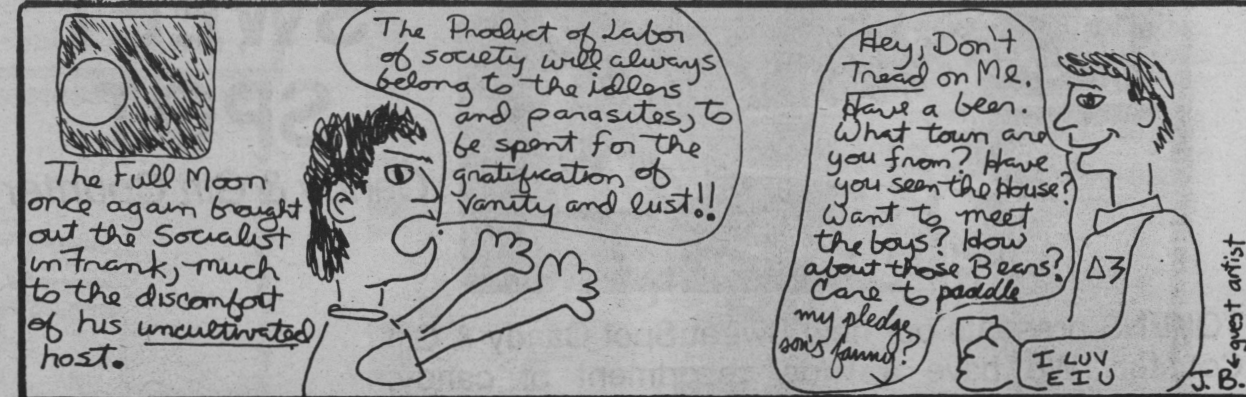 The Full Moon
once again brought
out the Socialist
in Frank, much
to the discomfort
of his uncultivated
host.
The Product of Labor
of society will always
belong to the idlers
and parasites, to
be spent for the
gratification of
vanity and lust!!
Hey, Don't
Tread on Me.
Have a beer.
What town are
you from? Have
you seen the House?
Want to meet
the boys? How
about those Bears?
Care to paddle
my pledge
son's fanny?
I LUV
EIU
J.B. ← guest artist